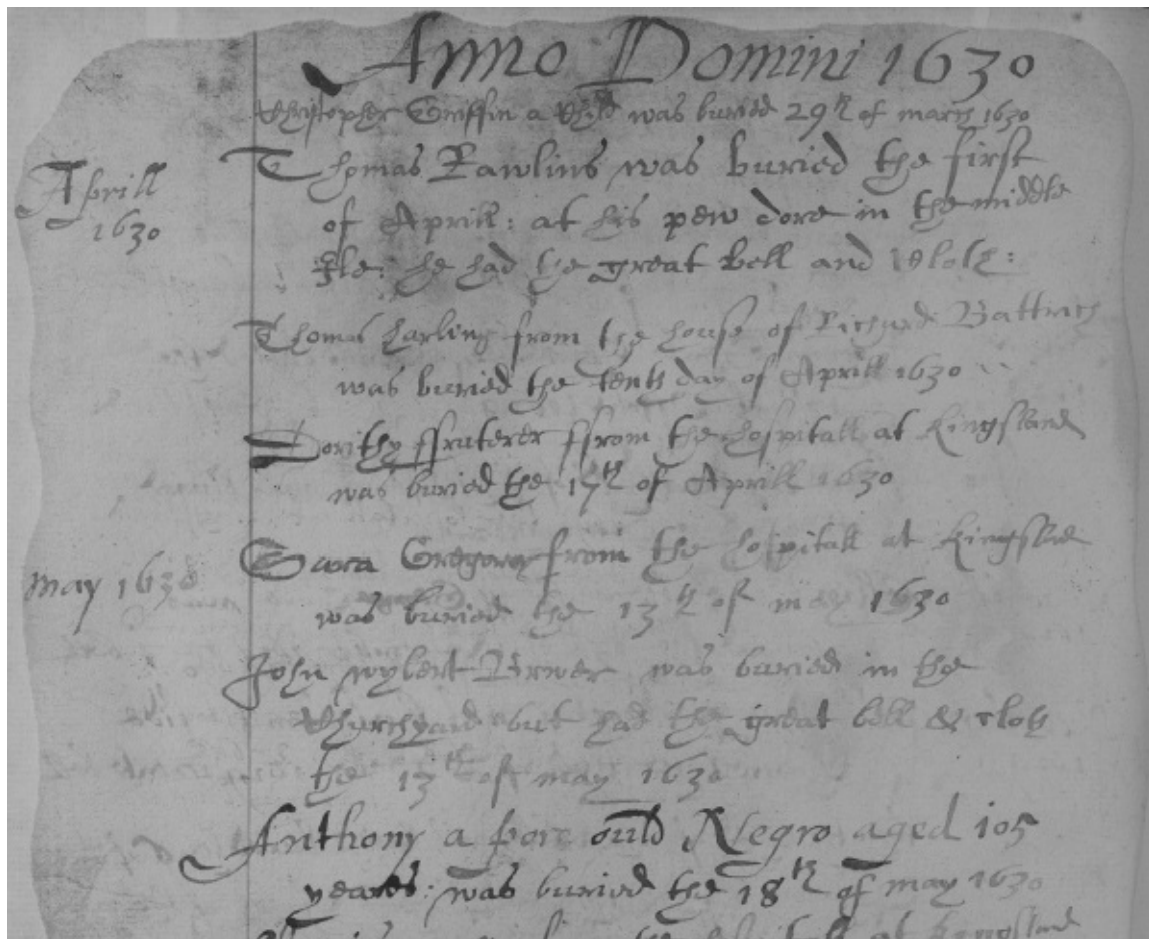 Anno Domini 1630
Christopher Griffin a Child was buried 29th of march 1630
Aprill
1630
Thomas Rawlins was buried the first
of Aprill: at his pew dore in the middle
Ile: he had the great Bell and Cloth:
Thomas Harling from the house of Richard Battrich
was buried the tenth day of Aprill 1630
Dorithy ffruterer ffrom the hospitall at Kingsland
was buried the 17th of Aprill 1630
may 1630
Sara Gregory from the hospitall at Kingsland
was buried the 13th of may 1630
John Brwer was buried in the
Churchyard but had the great bell & cloth
the 13th of may 1630
Anthony a pore ould Negro aged 105
yeares: was buried the 18th of may 1630
the hospitall at Kingsland